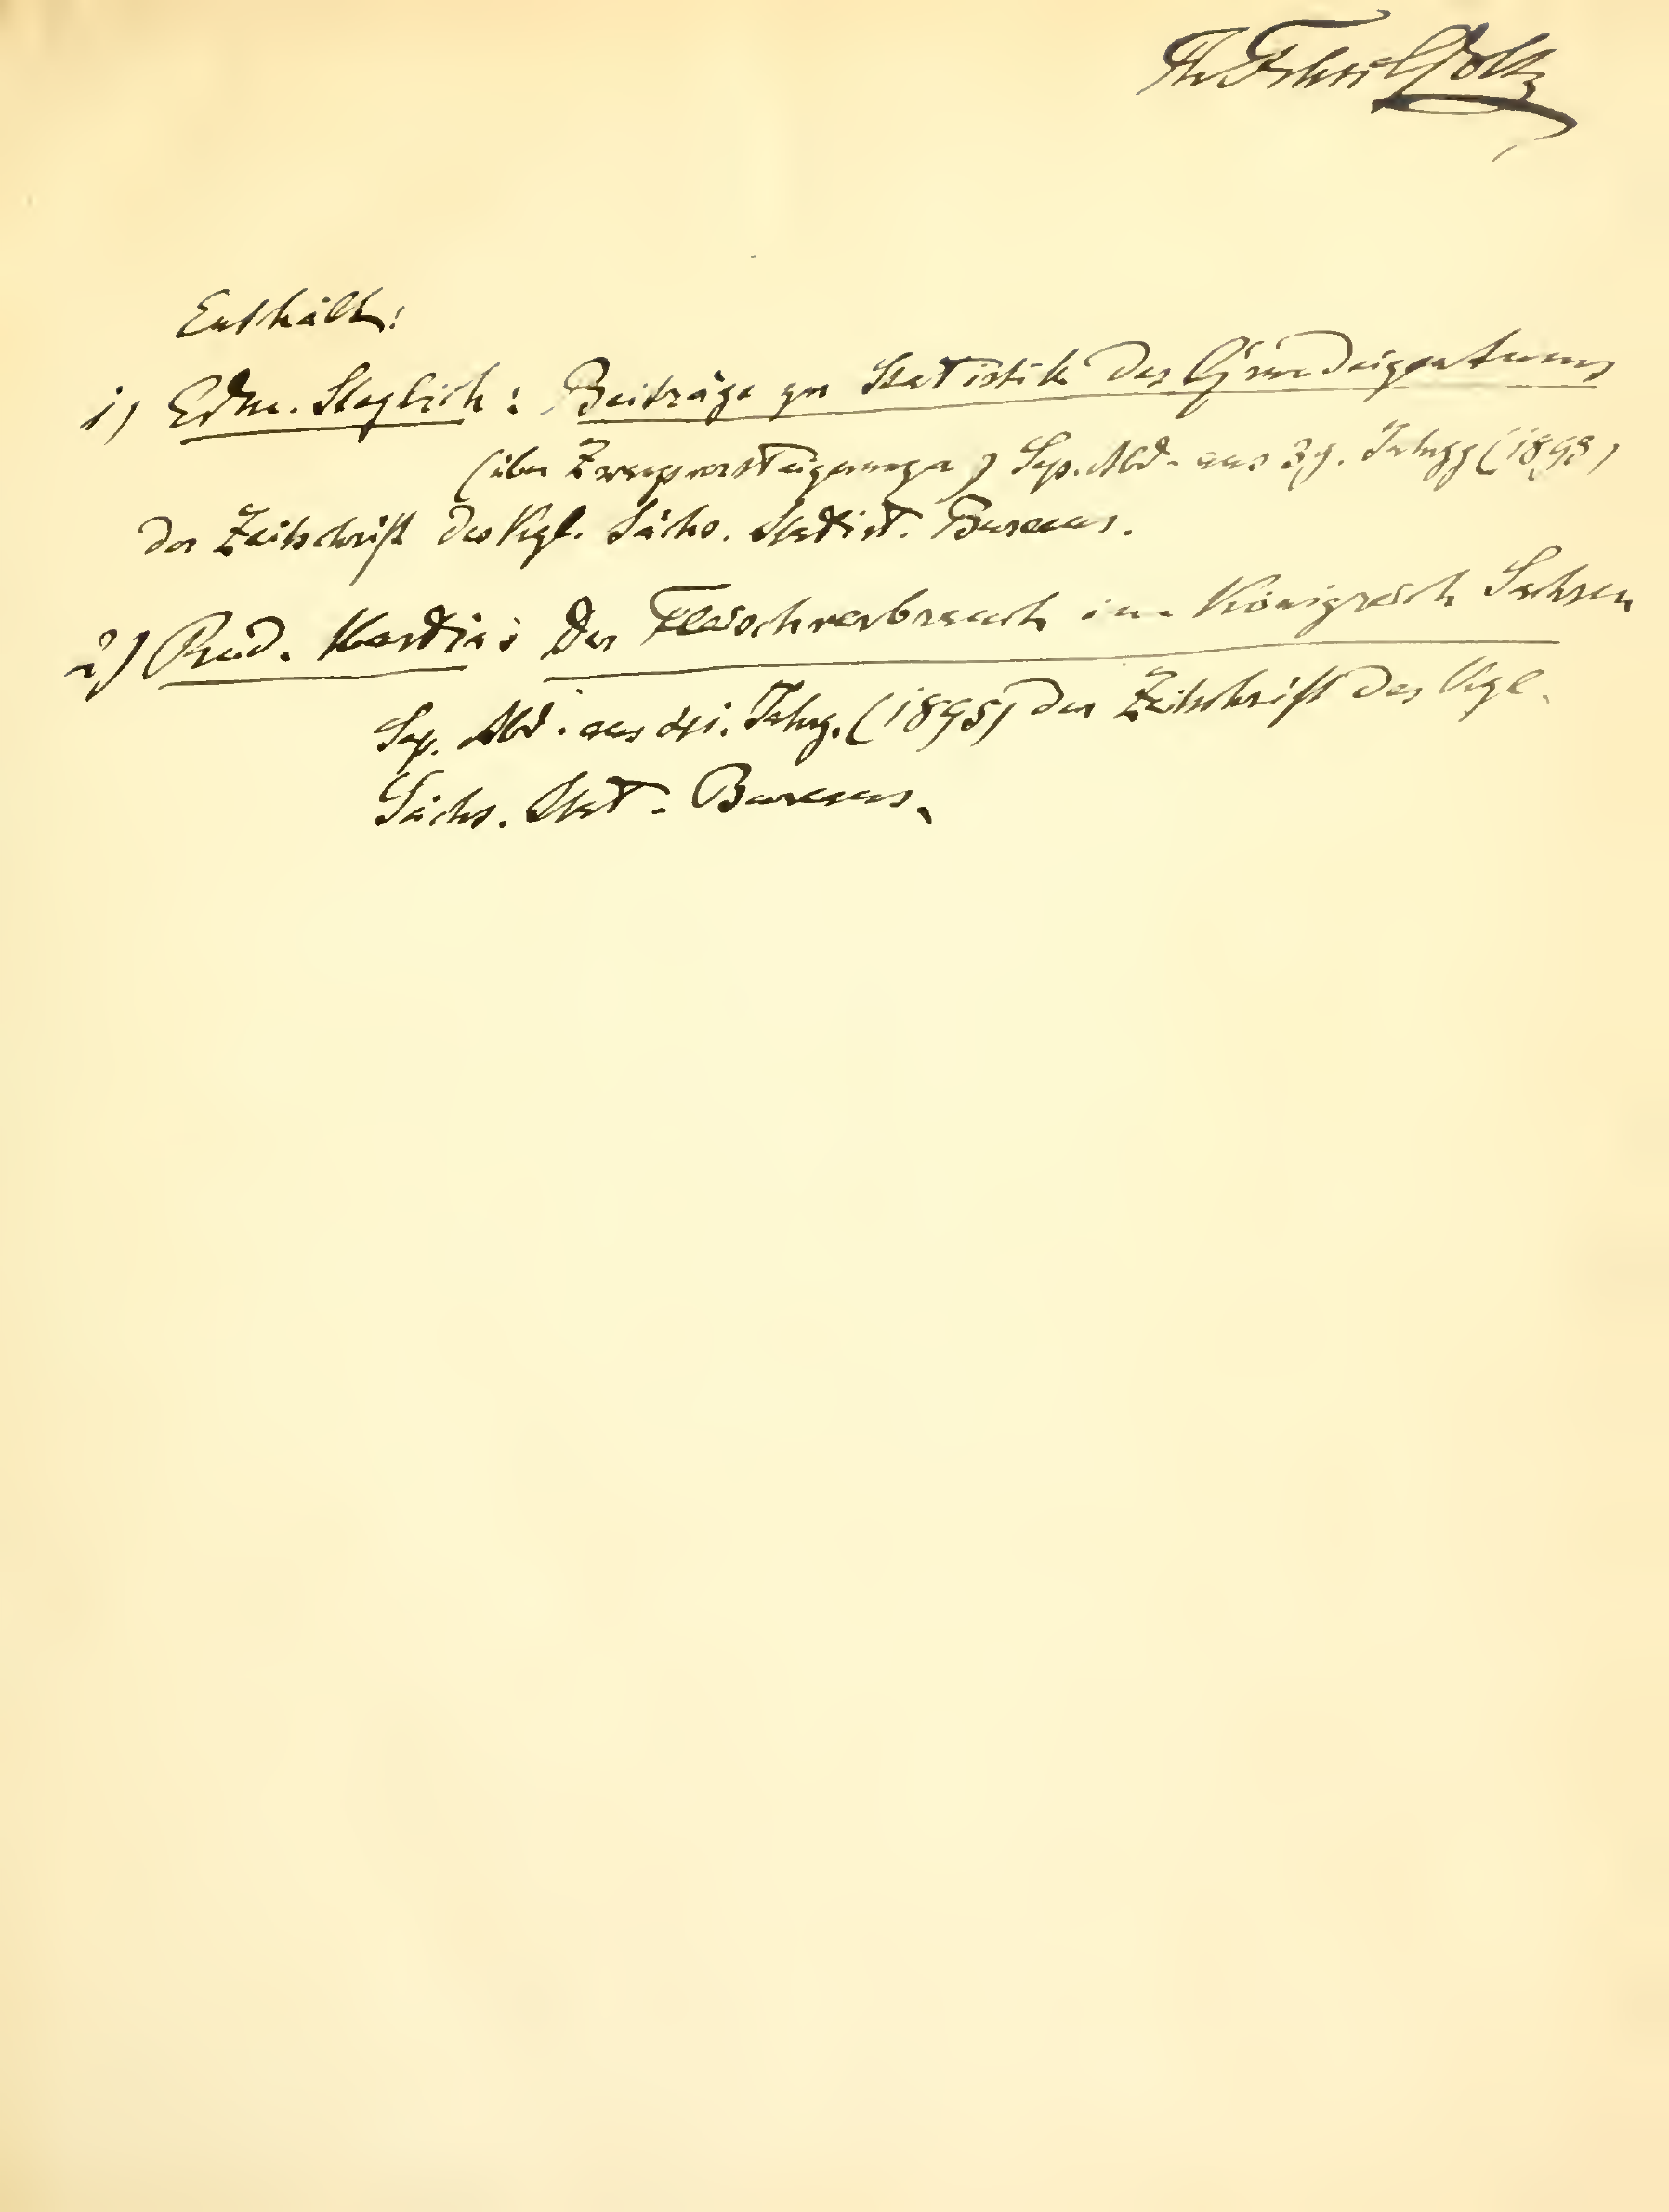 Th Frhr v Goltz
Enthält:
1) Edm. Steglich: Beiträge zur Statistik des Grundeigentums
(über Zwangsversteigerungen) Sep. Abd. aus 39. Jahrgg (1893)
der Zeitschrift des Kgl. Sächs. Statist. Bureaus.
2) Rud. Martin: Der Fleischverbrauch im Königreich Sachsen
Sep. Abd. aus 41. Jahrg. (1895) der Zeitschrift des Kgl.
Sächs. Stat. Bureaus.